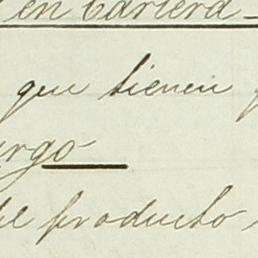 en Cartera
que tienen
urgo
el producto